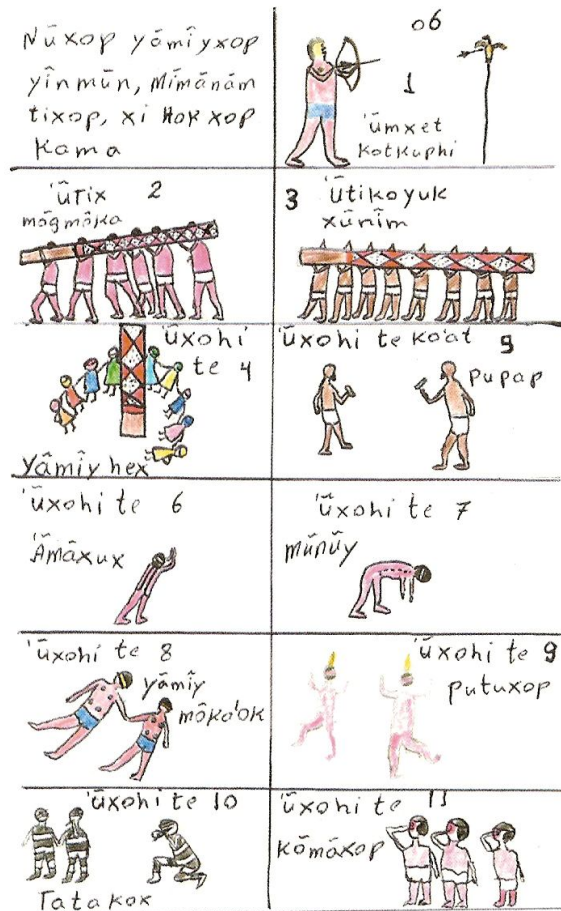 Nũxop yãmîyxop
yînmũn, mîmãnãm
tixop, xi Hok xop
Kama
06
1
'ũmxet
kotkuphi
'ũtix 2
mõgmõka
3 'ũtikoyuk
xũnîm
'ũxohi
te 4
yãmîy hex
'ũxohi te ko'at 9
pupap
'ũxohi te 6
'Ãmãxux
'ũxohi te 7
mũnũy
'ũxohi te 8
yãmîy
mõka'ok
'ũxohi te 9
putuxop
'ũxohi te 10
Tatakox
'ũxohi te 11
kõmãxop